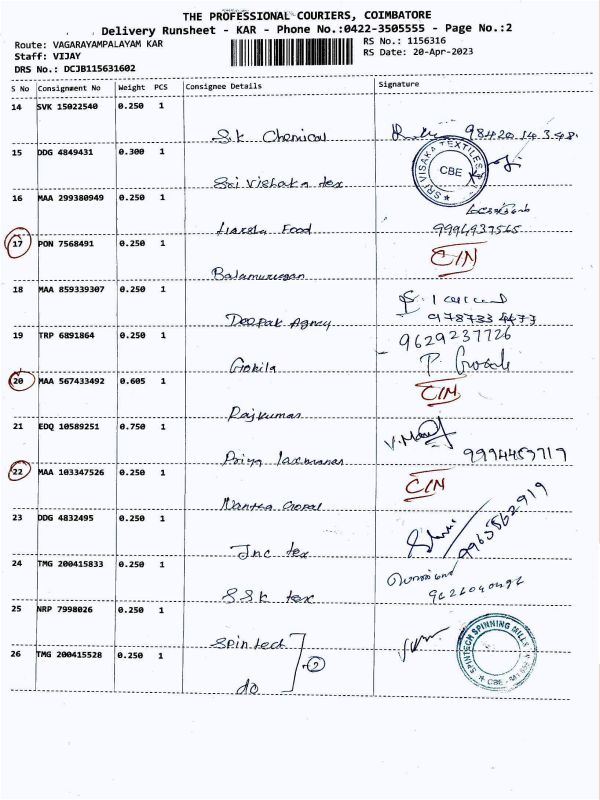 THE PROFESSIONAL COURIERS, COIMBATORE
Delivery Runsheet - KAR - Phone No.:0422-3505555 - Page No.:2
Route: VAGARAYAMPALAYAM KAR
RS No.: 1156316
Staff: VIJAY
RS Date: 20-Apr-2023
DRS No.: DCJB115631602
S No Consignment No Weight PCS Consignee Details Signature
14 SVK 15022540 0.250 1
S.K Chemical
15 DDG 4849431 0.300 1
Sri Vishaka tex
SRI VISAKA TEXTILES CBE
16 MAA 299380949 0.250 1
Harsha Food 9994937565
17 PON 7568491 0.250 1
Balamurugan C/N
18 MAA 859339307 0.250 1
Deepak Agncy
19 TRP 6891864 0.250 1
9629237726
Gokila
20 MAA 567433492 0.605 1
Rajkumar C/N
21 EDQ 10589251 0.750 1
Priya laxmanan
22 MAA 103347526 0.250 1
Nantha Gopal C/N
23 DDG 4832495 0.250 1
Jnc tex 9965562919
24 TMG 200415833 0.250 1
S.S.K tex
25 NRP 7998026 0.250 1
Spintech
SPINTECH SPINNING MILLS
26 TMG 200415528 0.250 1
do 2